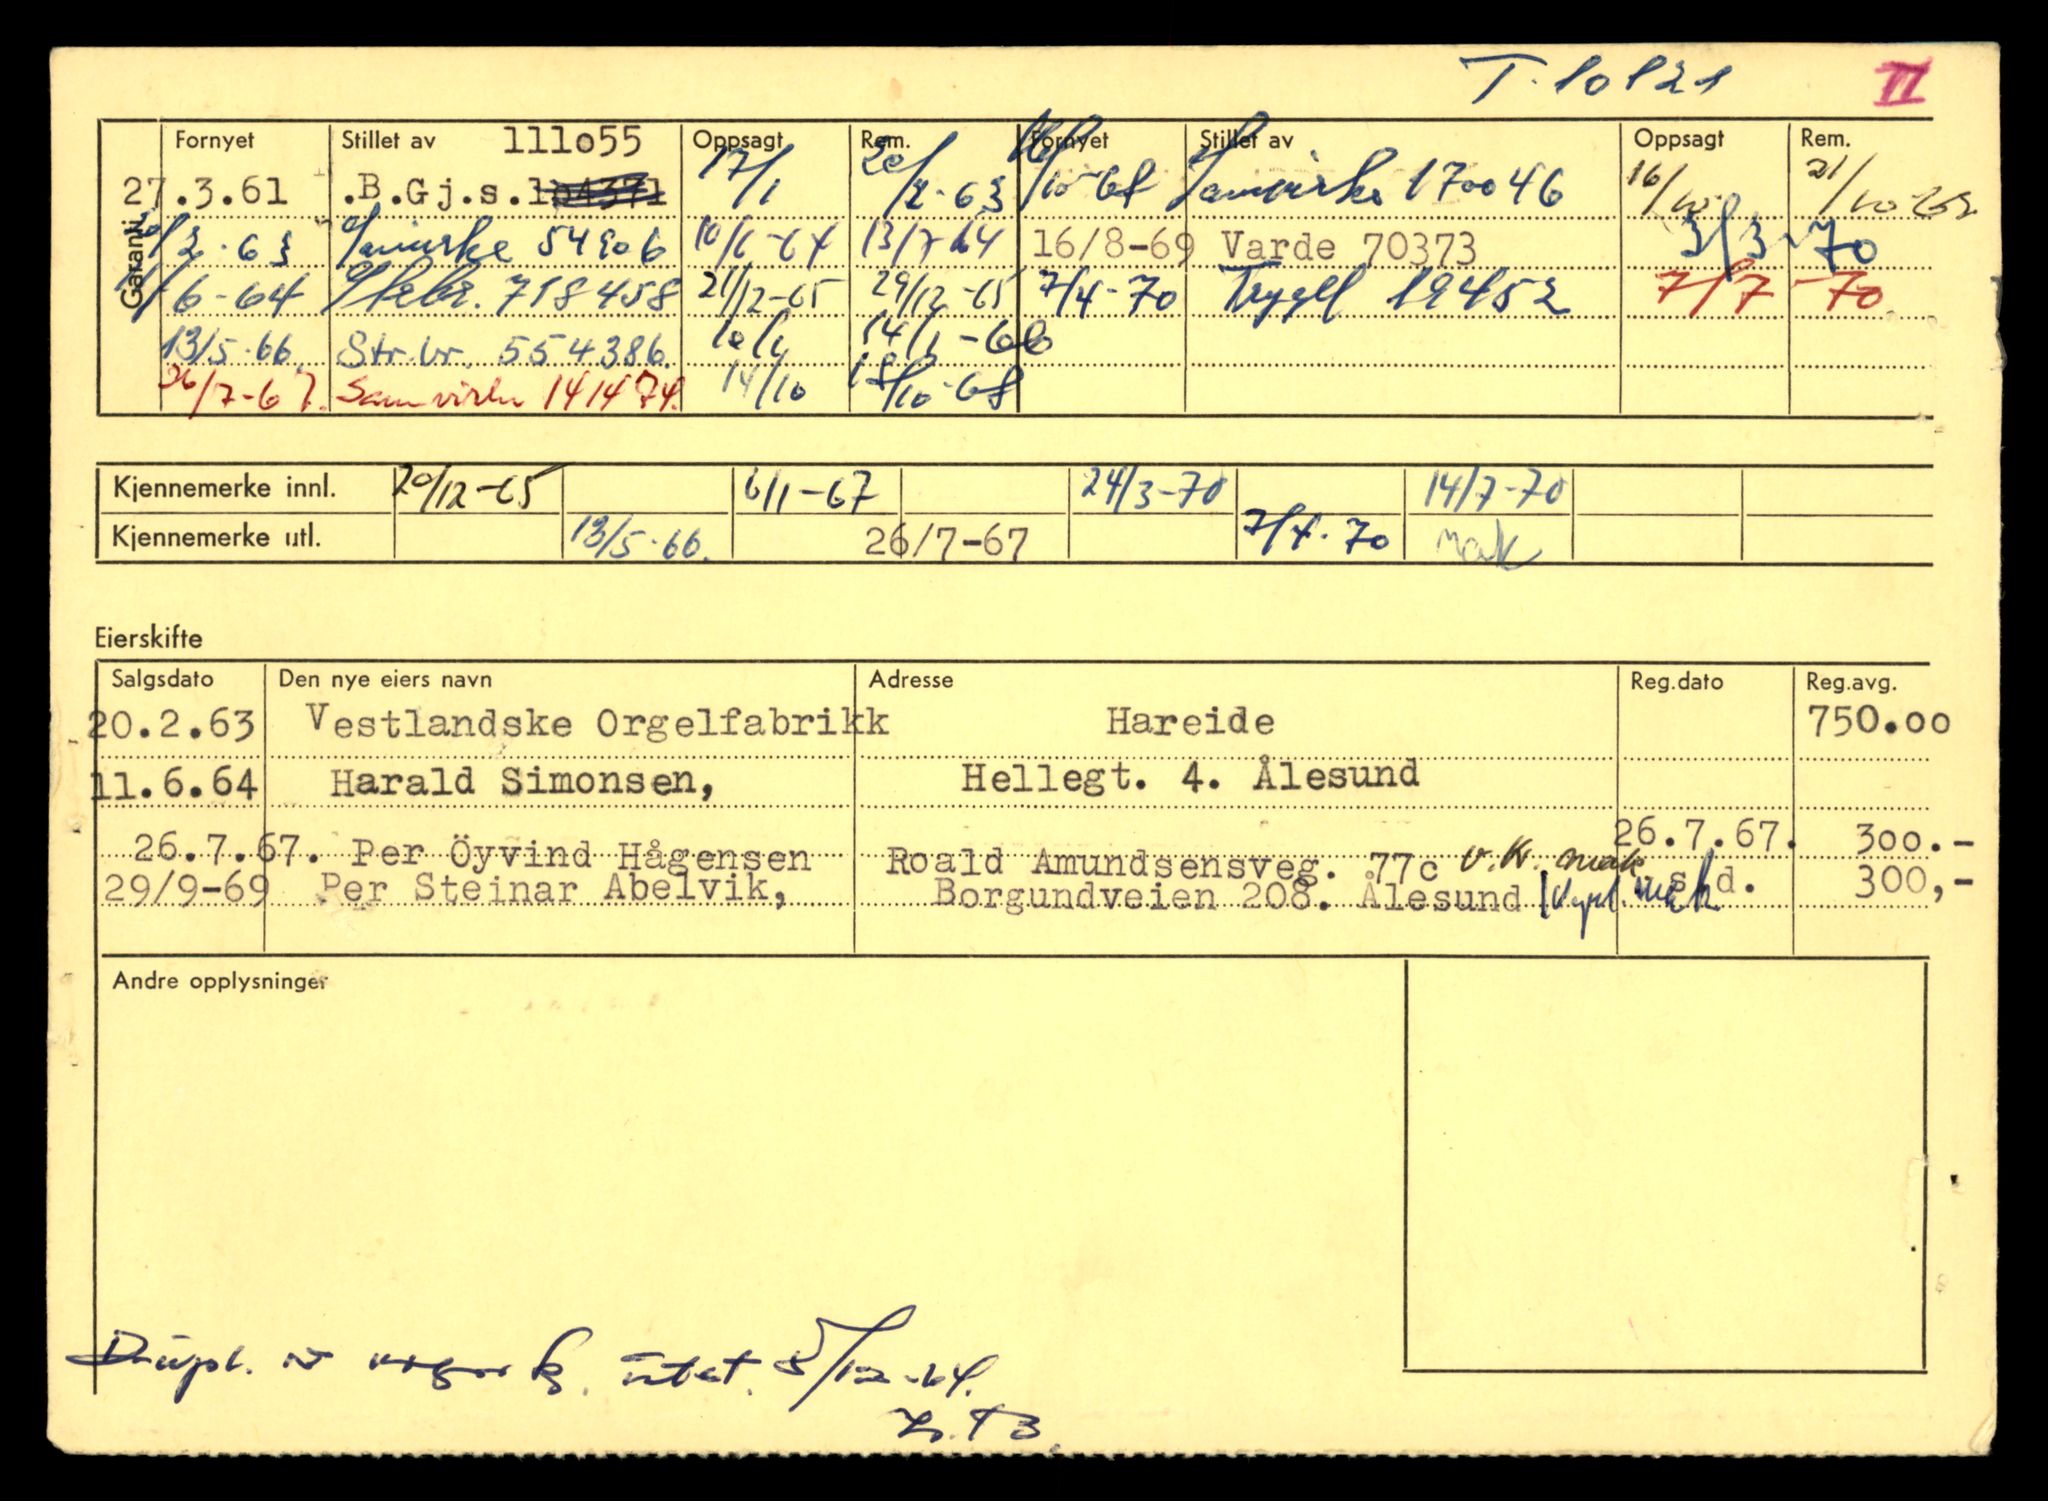 T. 10121 VI
Fornyet Stillet av 111o55 Oppsagt Rem. Fornyet Stillet av Oppsagt Rem.
Garanti
27.3.61 .B.Gj.s. 17/1 20/2-63 /10-68 Samvirke 170046 16/10 21/10-
/2-63 Samvirke 54906 10/6-64 13/7-64 16/8-69 Varde 70373 3/3-70
/6-64 718458 21/12-65 29/12-65 7/4-70 Trygd 19452 7/7-70
13/5-66 Str.br. 554386. 14/1-66
26/7-67. Samvirke 141474. 14/10 18/10-68
Kjennemerke innl. 20/12-65 6/1-67 24/3-70 14/7-70
Kjennemerke utl. 13/5-66. 26/7-67 7/4-70 mak
Eierskifte
Salgsdato Den nye eiers navn Adresse Reg.dato Reg.avg.
20.2.63 Vestlandske Orgelfabrikk Hareide 750.oo
11.6.64 Harald Simonsen, Hellegt. 4. Ålesund
26.7.67. Per Öyvind Hågensen Roald Amundsensveg. 77c v.k. mak 26.7.67. 300.-
29/9-69 Per Steinar Abelvik, Borgundveien 208. Ålesund mak s.d. 300,-
Andre opplysninger
Dupl. av vognk. utst. 5/12-64.